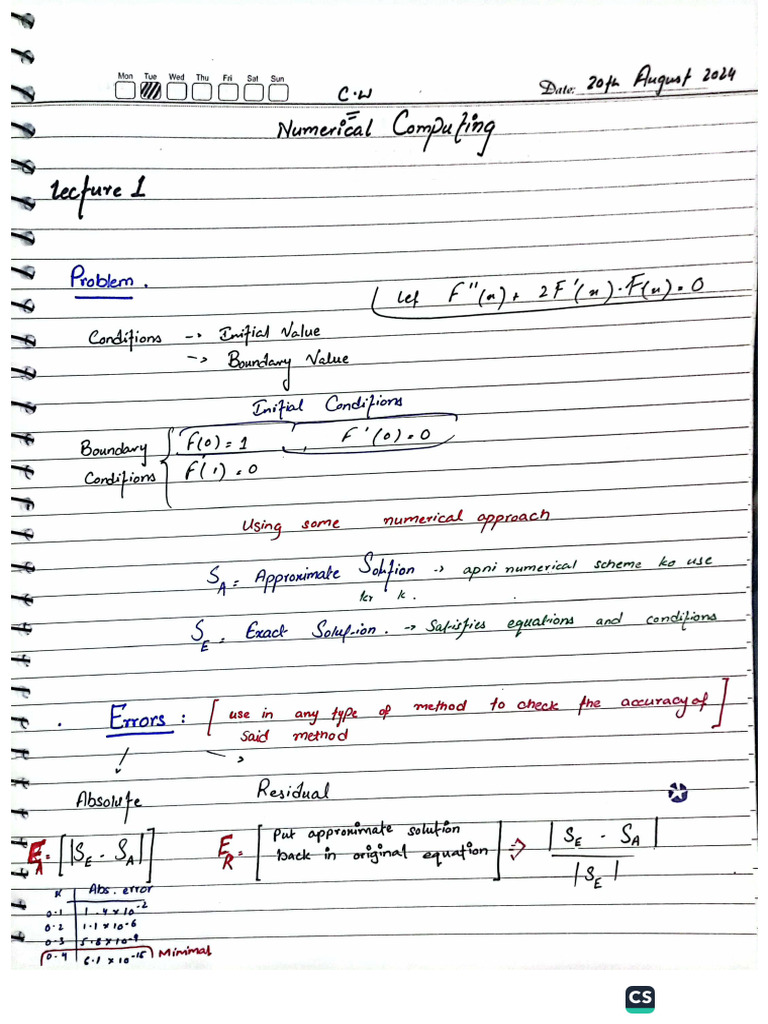 Mon Tue Wed Thu Fri Sat Sun
C.W
Date: 20th August 2024
Numerical Computing
Lecture 1
Problem.
Let F''(x) + 2F'(x) · F(x) = 0
Conditions -> Initial Value
-> Boundary Value
Initial Conditions
Boundary Conditions { F(0) = 1 F'(0) = 0
F(1) = 0
Using some numerical approach
S_A = Approximate Solution -> apni numerical scheme ko use
kr k.
S_E = Exact Solution. -> Satisfies equations and conditions
. Errors : [use in any type of method to check the accuracy of
said method]
Absolute Residual
E_A = [|S_E - S_A|] E_R = [Put approximate solution
back in original equation] => |S_E - S_A| / |S_E|
x Abs. error
0.1 1.4 x 10^-2
0.2 1.1 x 10^-6
0.3 5.8 x 10^-9
0.4 6.1 x 10^-15 Minimal
CS